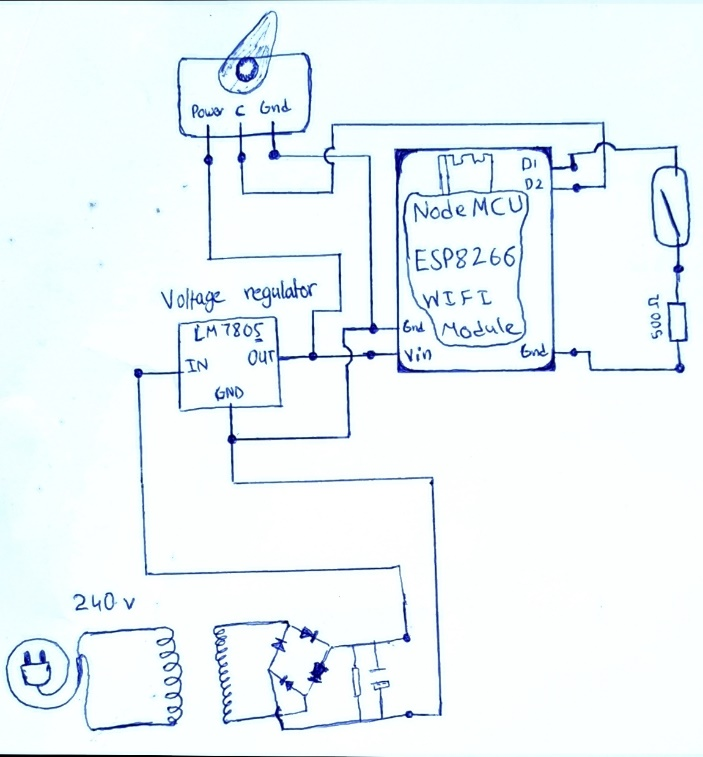 Power C Gnd
D1
D2
NodeMCU
ESP8266
WIFI
Module
Gnd
Vin
Gnd
500Ω
Voltage regulator
LM7805
IN
OUT
GND
240 v